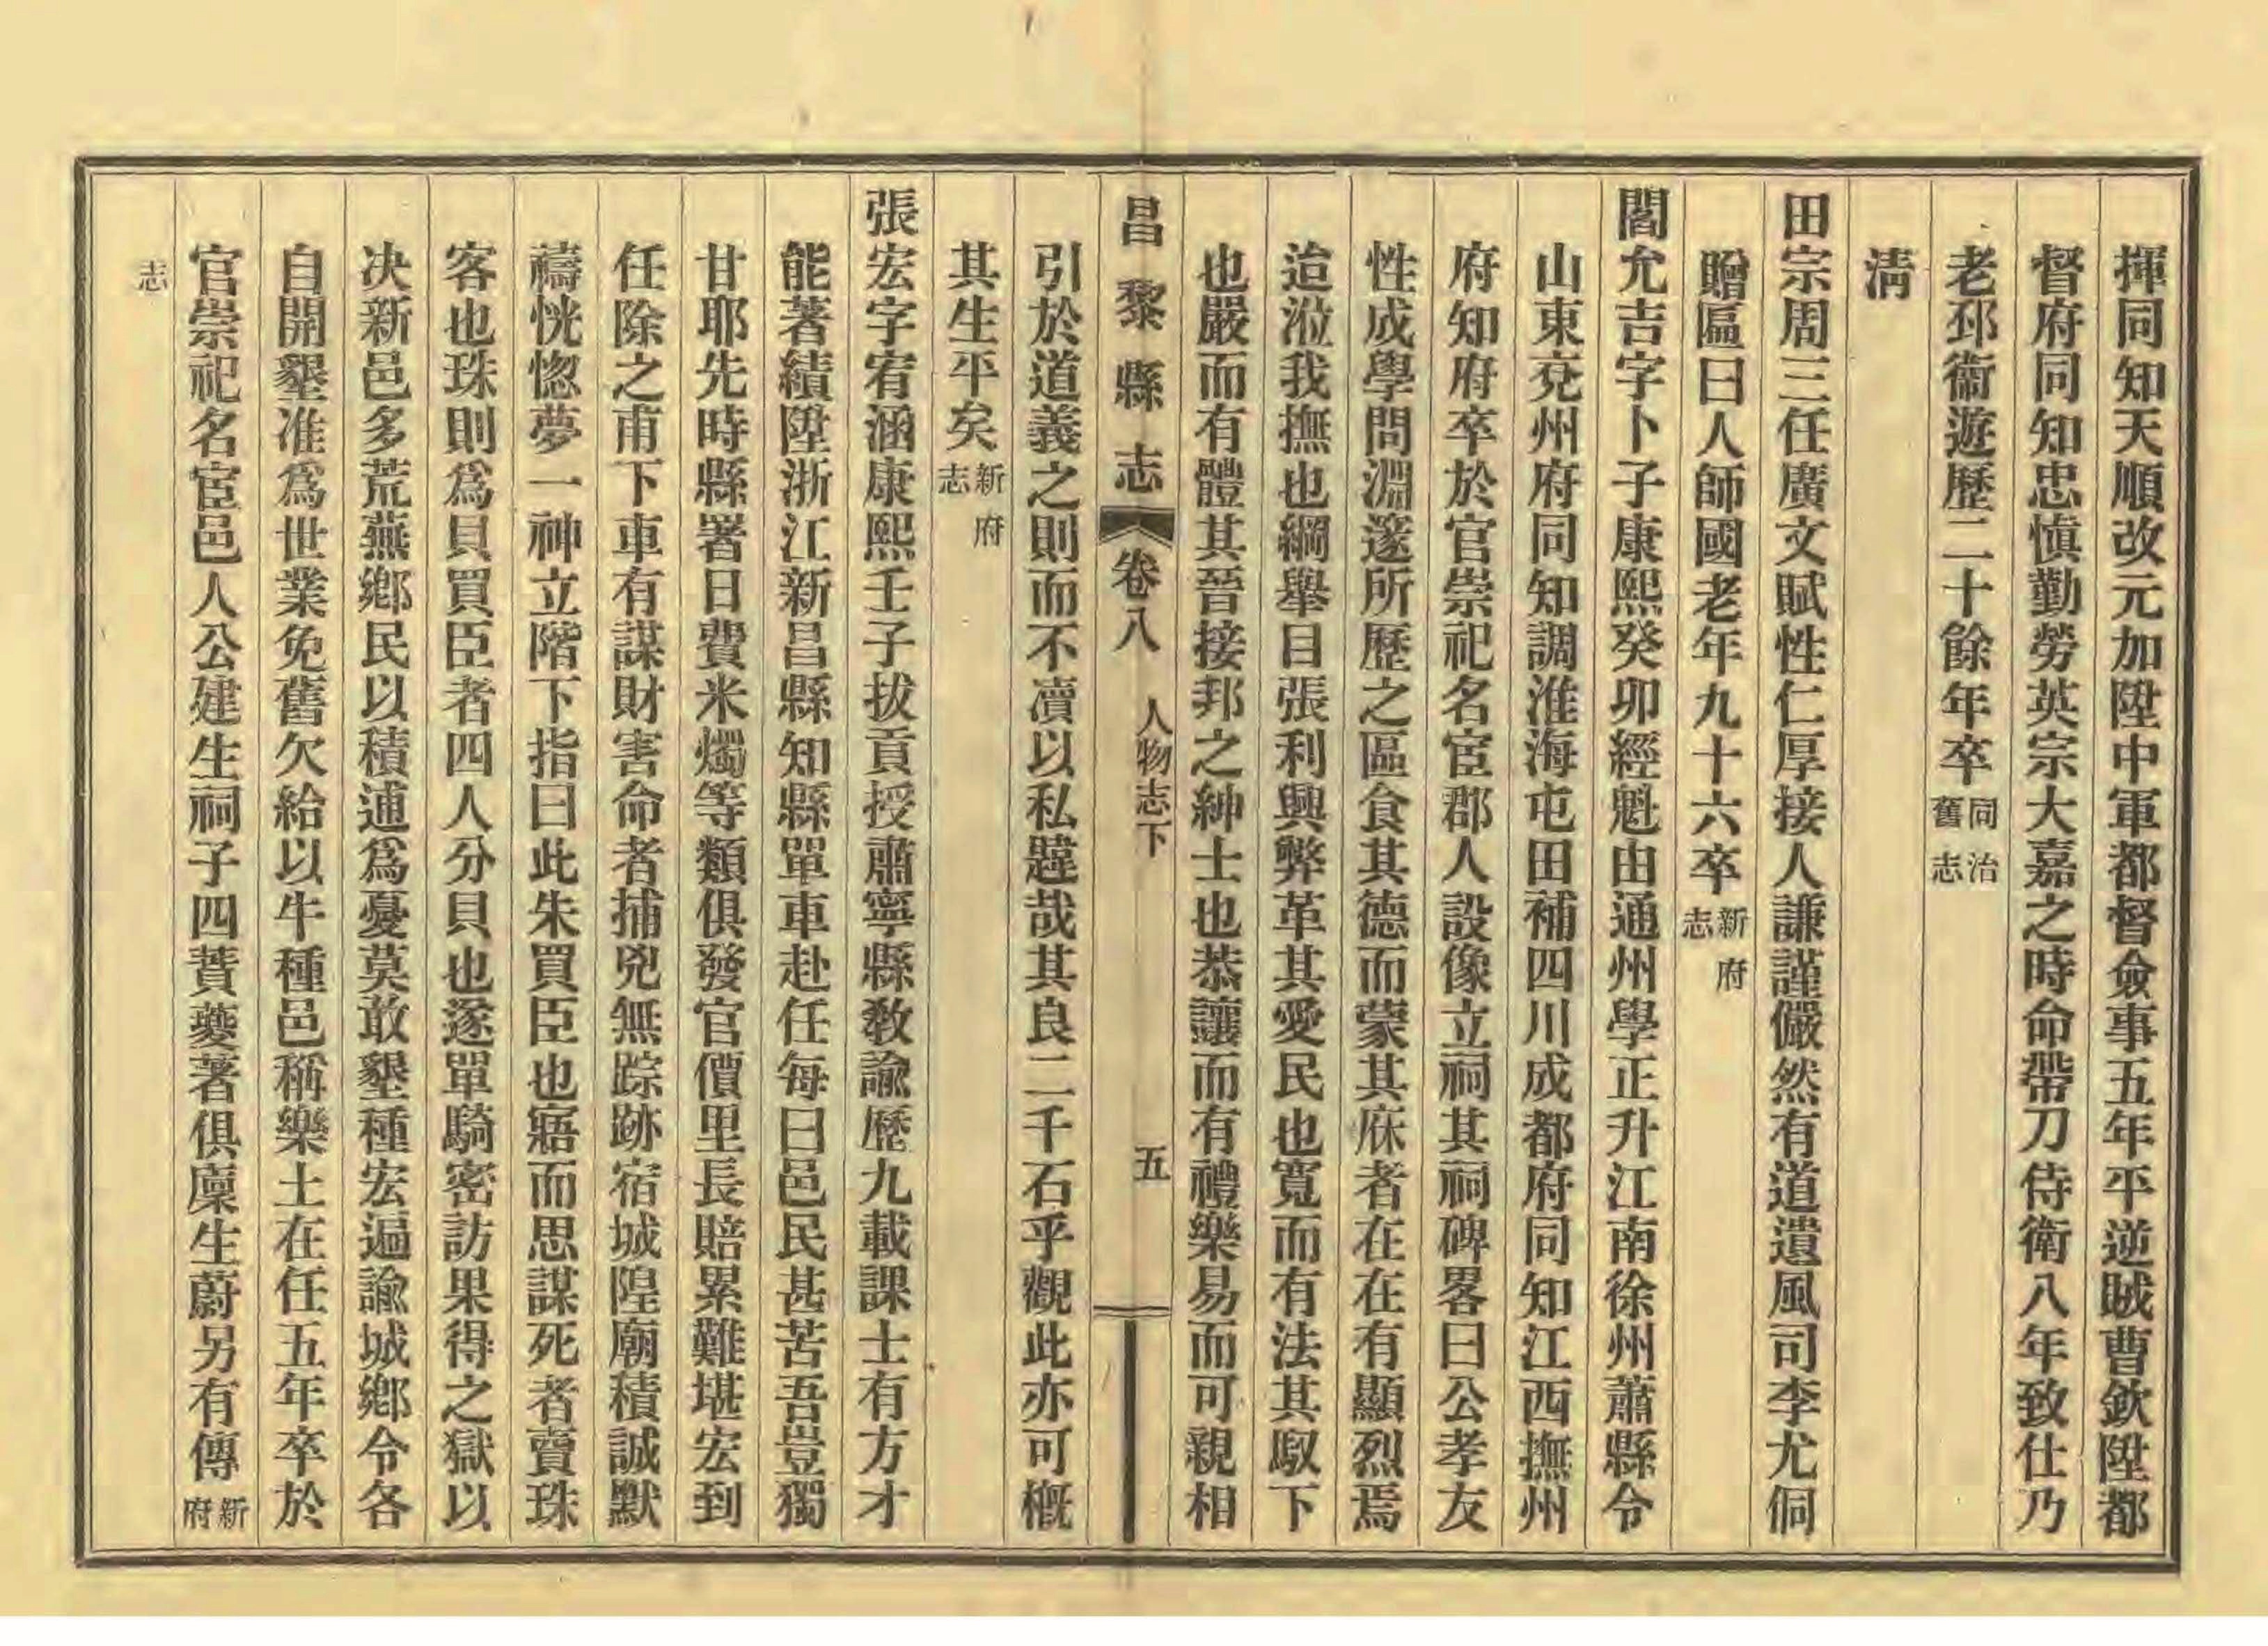 揮同知天順改元加陞中軍都督僉事五年平逆賊曹欽陞都
督府同知忠愼勤勞英宗大嘉之時命帶刀侍衛八年致仕乃
老邳衞遊歷二十餘年卒同治舊志
清
田宗周三任廣文賦性仁厚接人謙謹儼然有道遺風司李尤侗
贈匾曰人師國老年九十六卒新府志
閻允吉字卜子康熙癸卯經魁由通州學正升江南徐州蕭縣令
山東兗州府同知調淮海屯田補四川成都府同知江西撫州
府知府卒於官崇祀名宦郡人設像立祠其祠碑畧曰公孝友
性成學問淵邃所歷之區食其德而蒙其庥者在在有顯烈焉
迨涖我撫也綱舉目張利興弊革其愛民也寬而有法其馭下
也嚴而有體其晉接邦之紳士也恭讓而有禮樂易而可親相
昌黎縣志 卷八 人物志下 五
引於道義之則而不凟以私韙哉其良二千石乎觀此亦可槪
其生平矣新府志
張宏字宥涵康熙壬子拔貢授肅寧縣敎諭歷九載課士有方才
能著績陞浙江新昌縣知縣單車赴任每曰邑民甚苦吾豈獨
甘耶先時縣署日費米燭等類俱發官價里長賠累難堪宏到
任除之甫下車有謀財害命者捕兇無踪跡宿城隍廟積誠默
禱恍惚夢一神立階下指曰此朱買臣也寤而思謀死者賣珠
客也珠則爲貝買臣者四人分貝也遂單騎密訪果得之獄以
决新邑多荒蕪鄉民以積逋爲憂莫敢墾種宏遍諭城鄉令各
自開墾准爲世業免舊欠給以牛種邑稱樂土在任五年卒於
官崇祀名宦邑人公建生祠子四蕡薆著俱廩生蔚另有傳新府
志